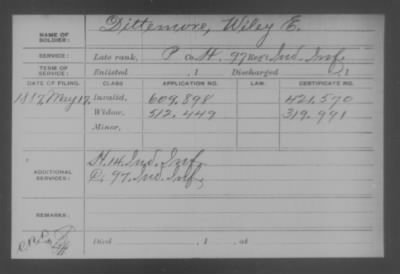 NAME OF SOLDIER: Dittemore, Wiley E.
SERVICE: Late rank, P Co H. 97 Ind. Inf.
TERM OF SERVICE: Enlisted , 1 Discharged , 1
DATE OF FILING. CLASS APPLICATION NO. LAW. CERTIFICATE NO.
1887, May 17, Invalid, 609,898 421,570
Widow, 512,449 319,991
Minor,
ADDITIONAL SERVICES: H. 14. Ind. Inf.
C. 97. Ind. Inf.
REMARKS:
Died , 1 , at